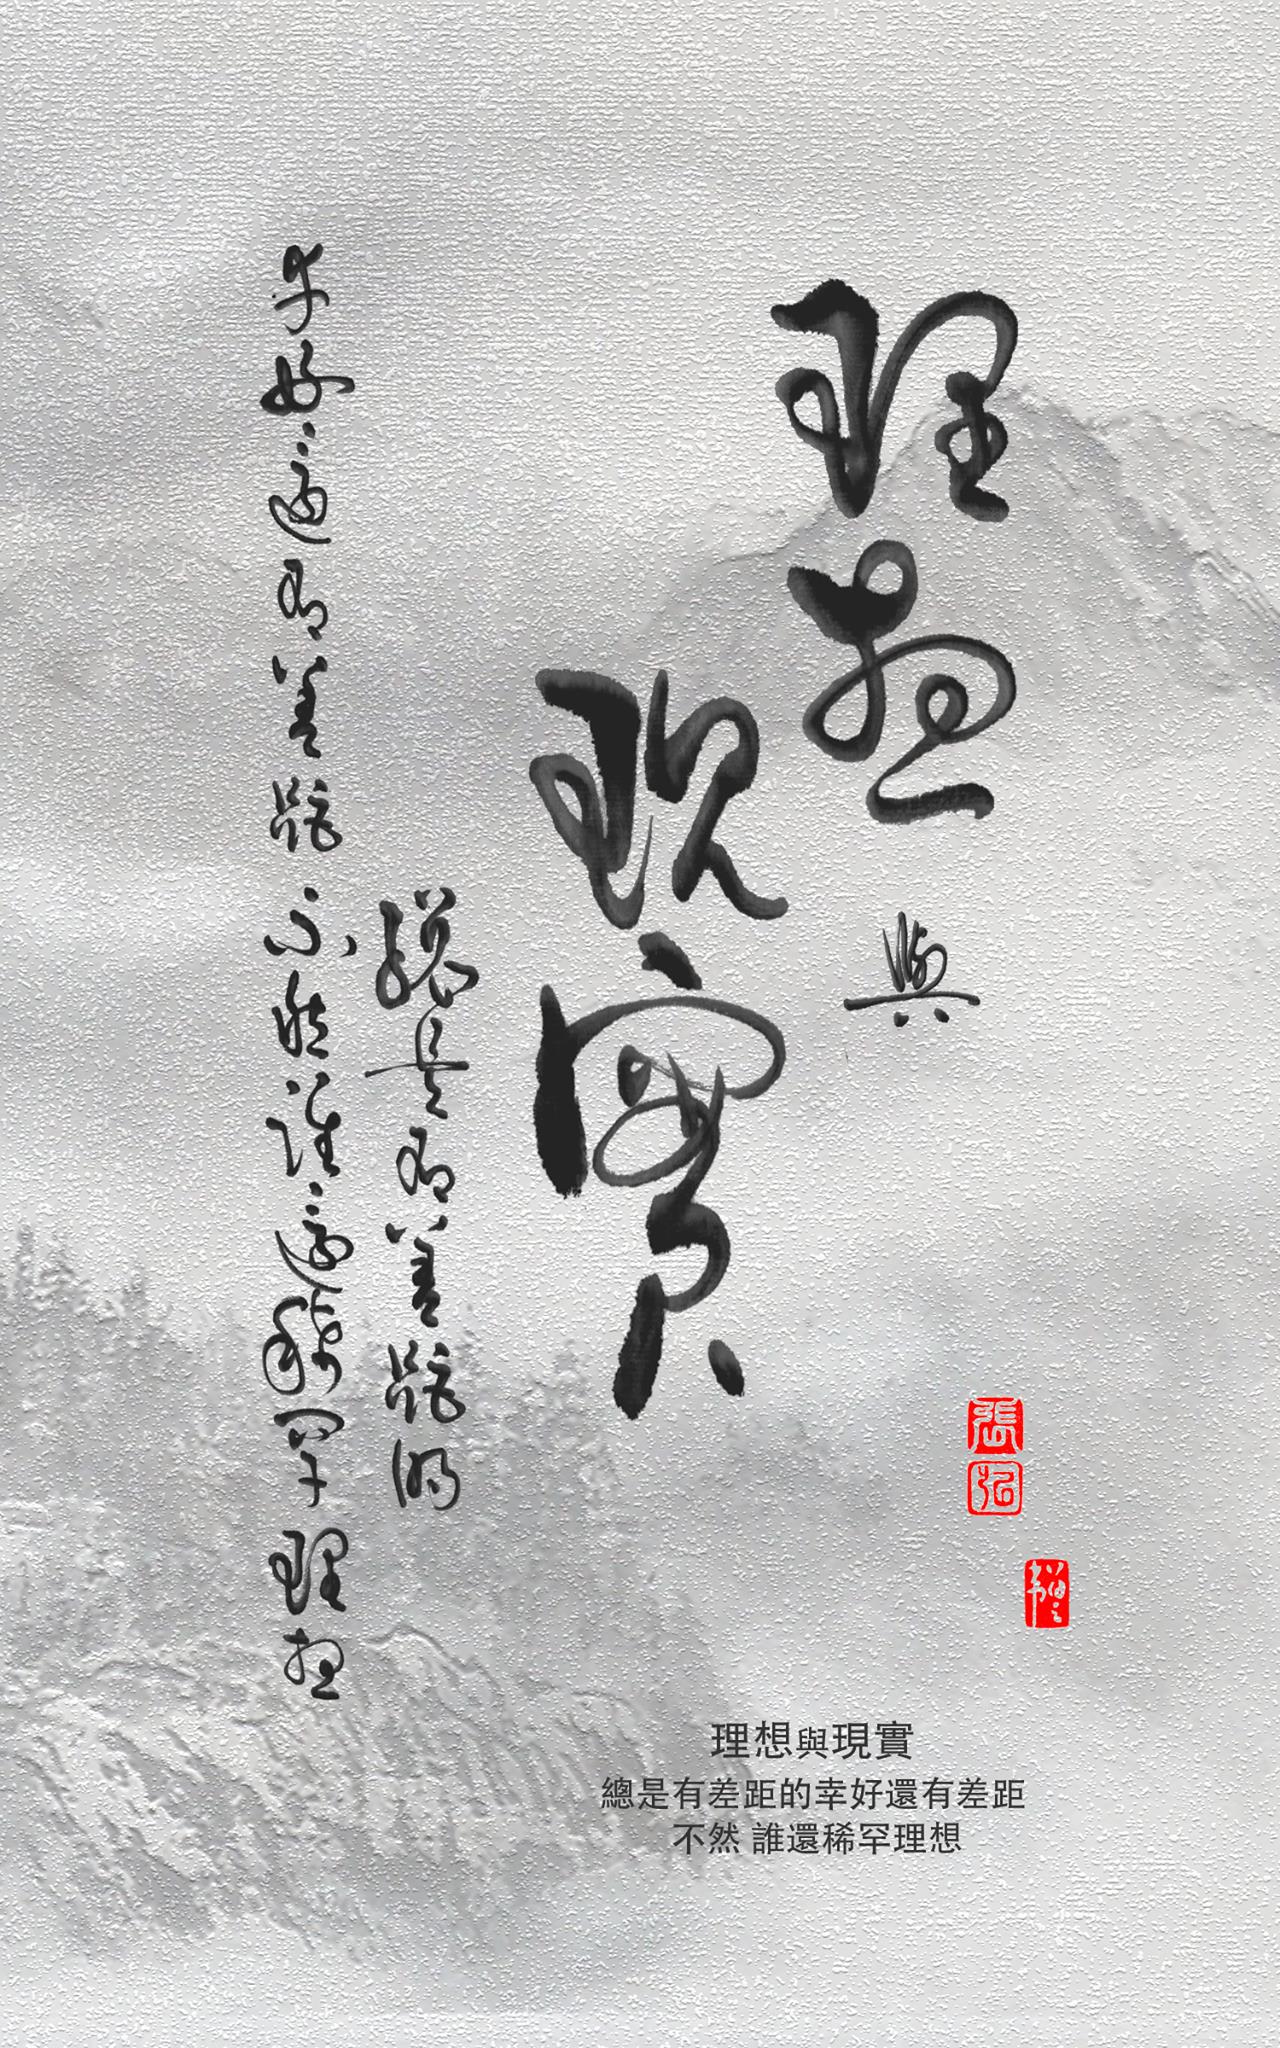 理想
與
現實
總是有差距的
幸好還有差距不然誰還稀罕理想
理想與現實
總是有差距的幸好還有差距
不然 誰還稀罕理想